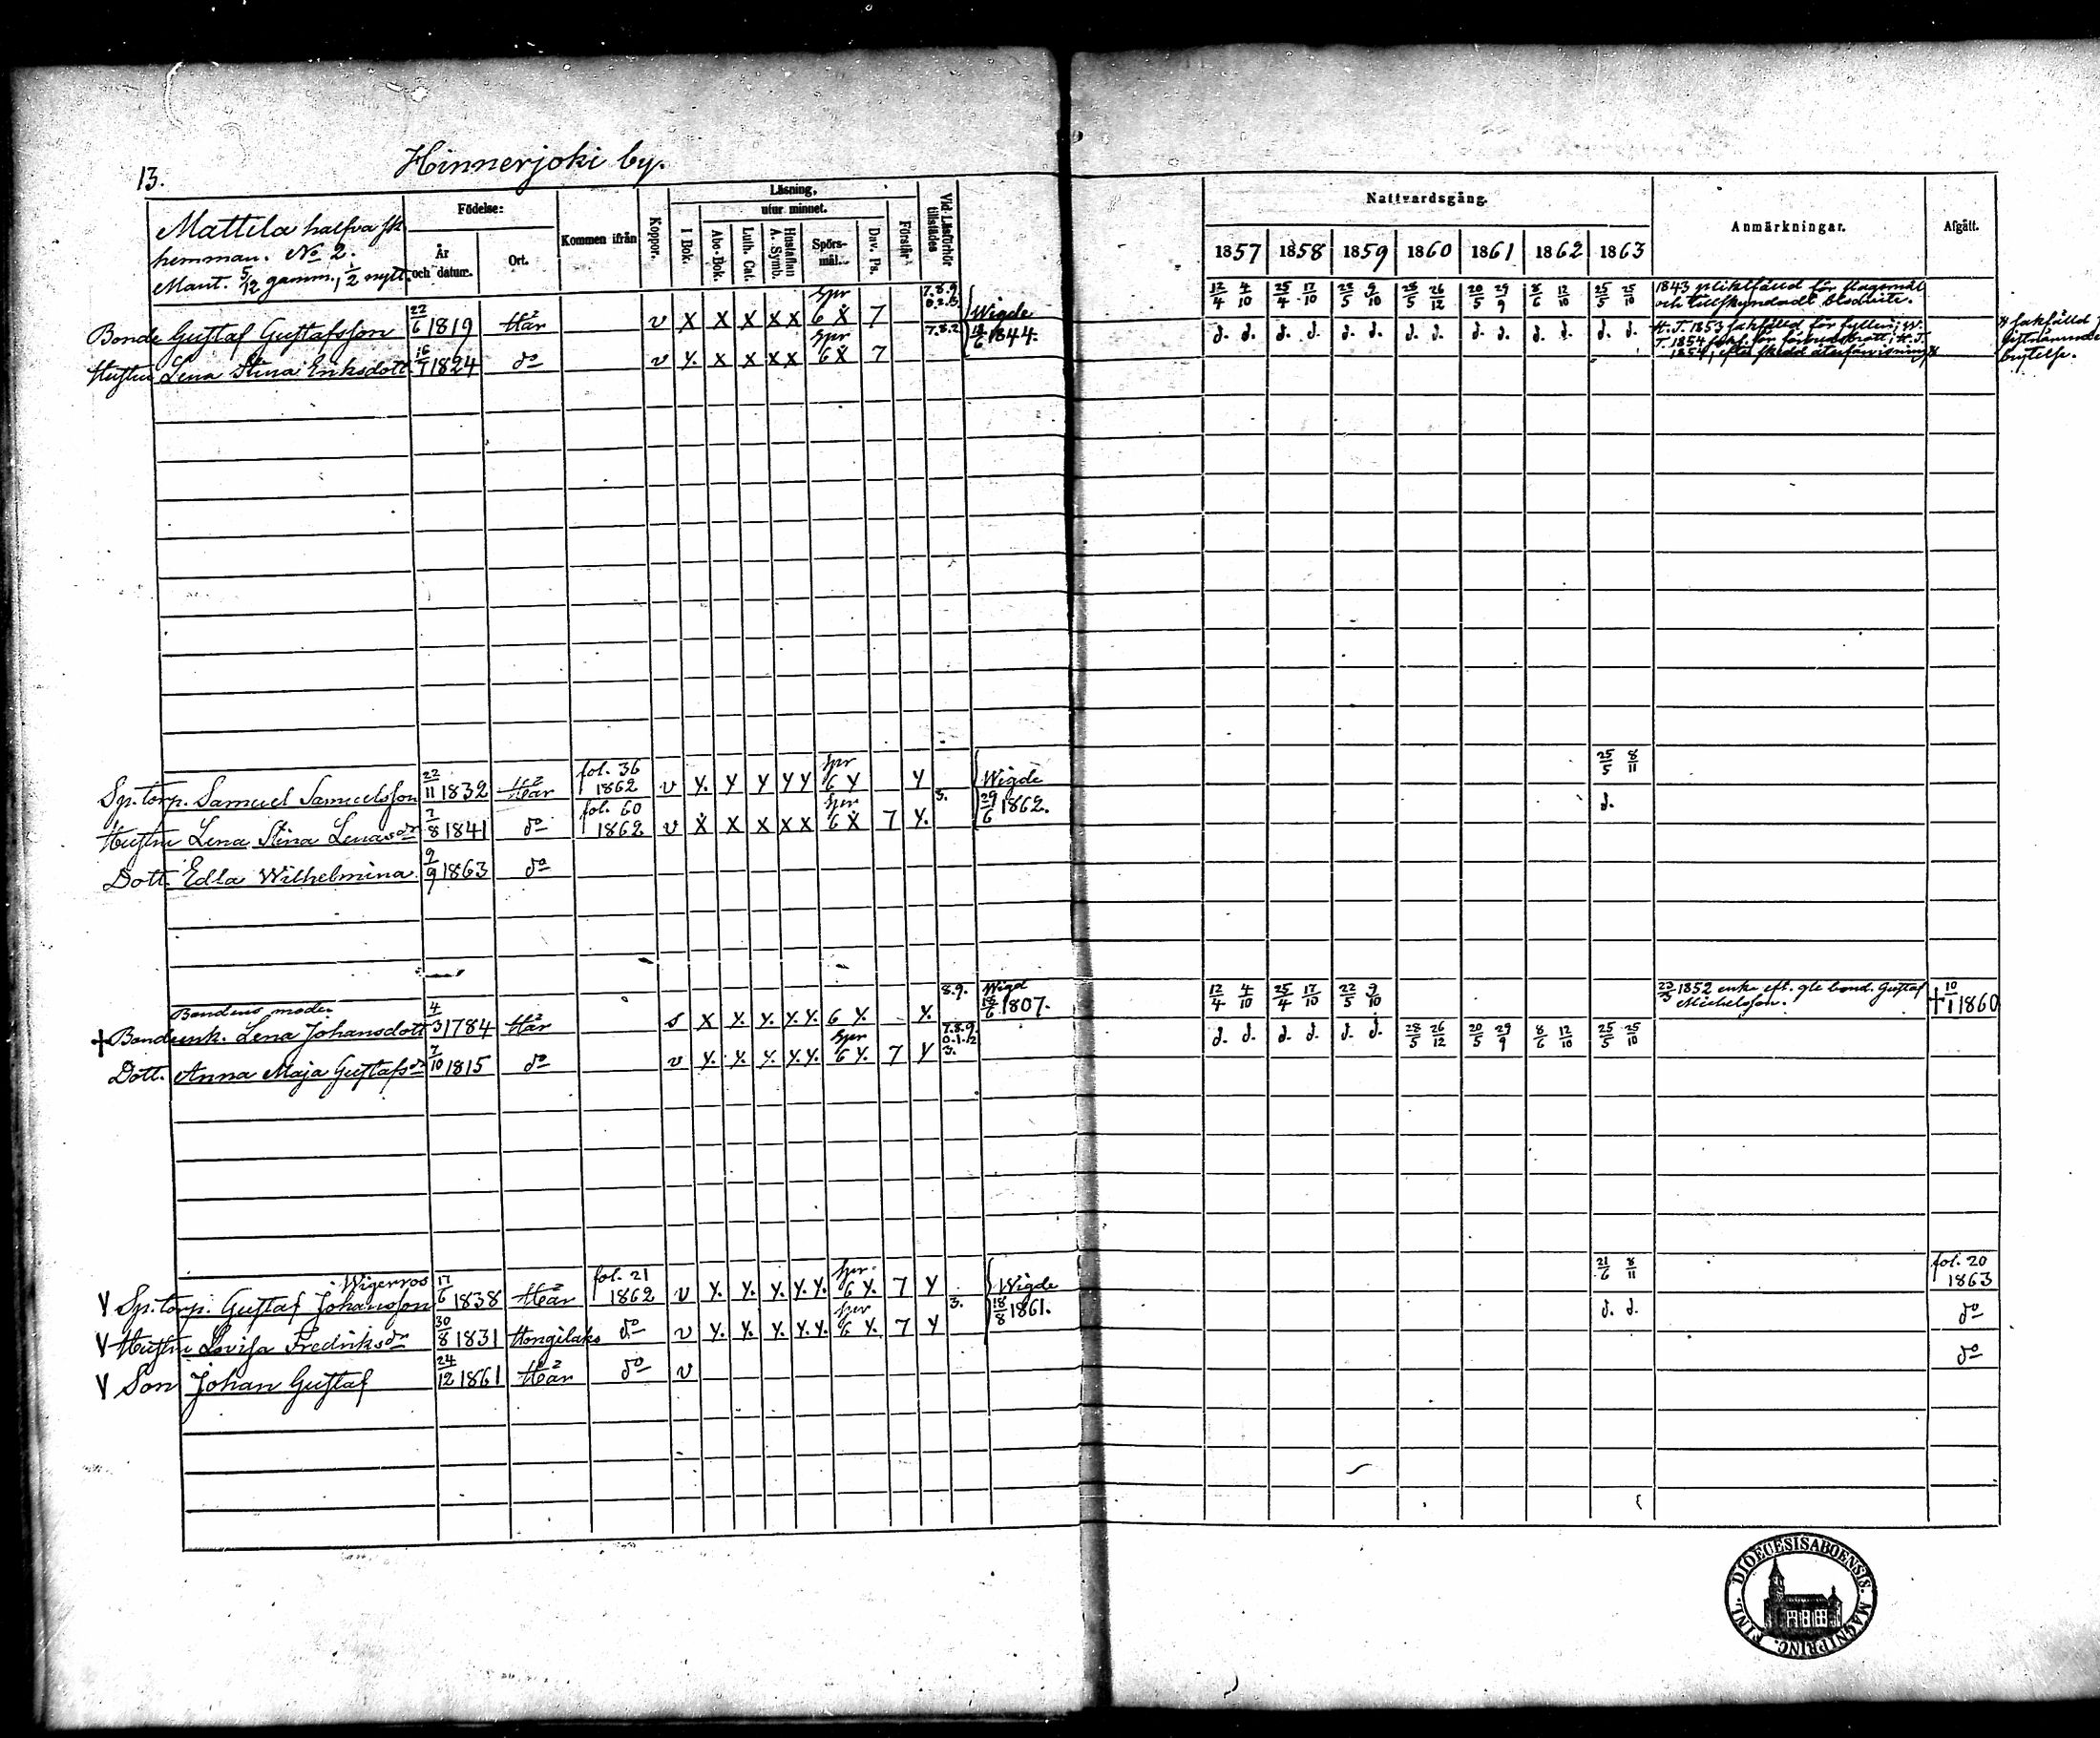 13.
Hinnerjoki by.
Mattila halfva sk
hemman. No 2.
Mant. 5/12 gamm., 1/2 nytt.
Födelse:
År och datum.
Ort.
Kommen ifrån
Koppor.
Läsning,
utur minnet.
I Bok.
Abc-Bok.
Luth. Cat.
Hustaflan A. Symb.
Spörs-mål.
Dav. Ps.
Förstår
Vid Läsförhör tillstädes
Nattvardsgång.
1857 1858 1859 1860 1861 1862 1863
Anmärkningar.
Afgått.
Bonde Gustaf Gustafsson 22/6 1819 Här v X X X X X Spr 6 X 7 7.8.9. 0.2.3. Wigde 12/4 4/10 25/4 17/10 22/5 9/10 28/5 26/12 20/5 29/9 8/6 12/10 25/5 25/10 1843 pliktfälld för slagsmål
och tillskyndadt blodvite.
Hustru Lena Stina Eriksdott 16/7 1824 do v Y. X X X X Spr 6 X 7 7.8.2 18/6 1844. d. d. d. d. d. d. d. d. d. d. d. d. d. d. H.T. 1853 sakfälld för fylleri; W.
T. 1854 sakf. för förbudsbrott; H.T.
1854, efter skedd återförvisning
sakfälld
Sp. torp. Samuel Samuelsson 22/11 1832 Här fol. 36 1862 v Y. Y Y Y Y Spr 6 Y Y Wigde 25/5 8/11
Hustru Lena Stina Lenasdr 7/8 1841 do fol. 60 1862 v X X X X X Spr 6 X 7 Y. 3. 29/6 1862. d.
Dott. Edla Wilhelmina 9/9 1863 do
Bondens moder
Bondeenk. Lena Johansdott 4/3 1784 Här s X Y. Y. Y. Y. 6 Y. Y. 8.9. Wigd 18/6 1807. 12/4 4/10 25/4 17/10 22/5 9/10 23/3 1852 enka eft. gle bond. Gustaf
Michelsson. † 10/1 1860
Dott. Anna Maja Gustafsdr 7/10 1815 do v Y. Y. Y. Y. Y. Spr 6 Y. 7 Y 7.8.9. 0.1.2 3. d. d. d. d. d. d. 28/5 26/12 20/5 29/9 8/6 12/10 25/5 25/10
Wigerros
V Sp. torp. Gustaf Johansson 17/6 1838 Här fol. 21 1862 v Y. Y. Y. Y. Y. Spr. 6 Y. 7 Y Wigde 21/6 8/11 fol. 20 1863
V Hustru Lovisa Fredriksdr 30/8 1831 Hongilaks do v Y. Y. Y. Y. Y. Spr 6 Y. 7 Y 3. 18/8 1861. d. d. do
V Son Johan Gustaf 24/12 1861 Här do v do
DIOECESIS ABOENSIS. MAGNI PRINC. FINL.